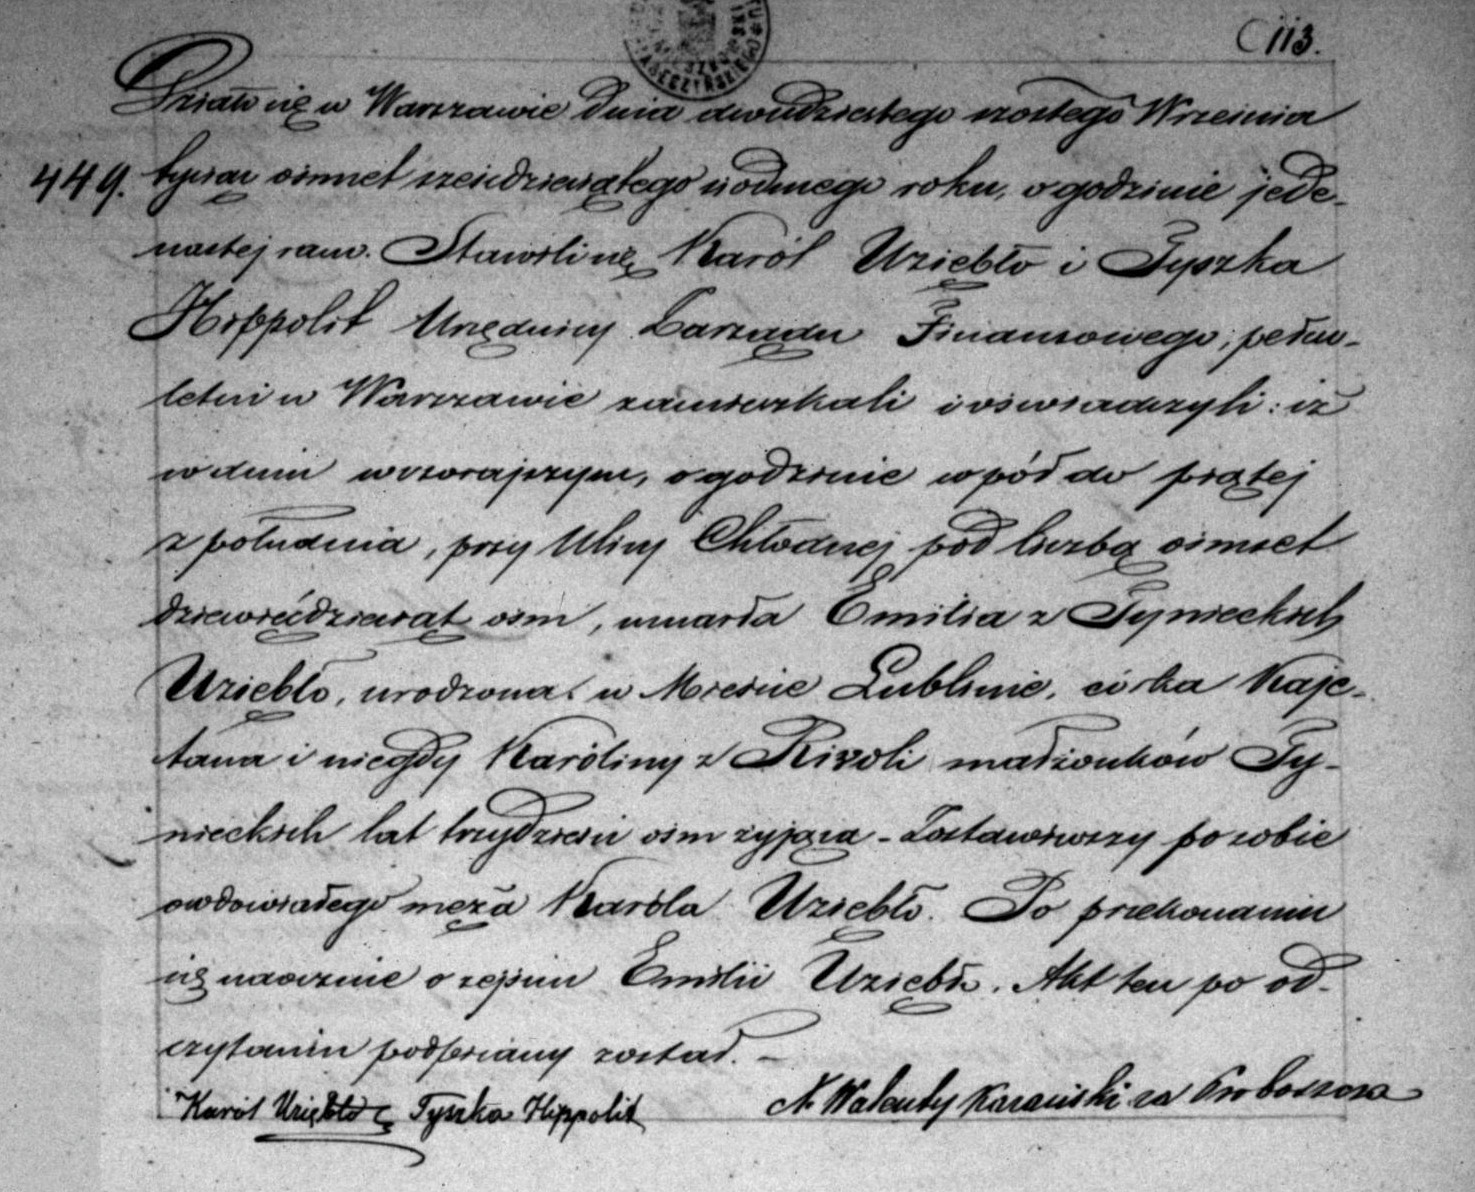 113.
Działo się w Warszawie dnia dwudziestego szostego Wrzesnia
449. tysiąc osmset szescdziesiątego siodmego roku, o godzinie jede-
nastej rano. Stawili się Karól Uziębło i Tyszka
Hippolit Urzędnicy Zarządu Finansowego, pełno-
letni w Warszawie zamieszkali i oswiadczyli: iż
w dniu wczorajszym, o godzinie wpół do piątej
z południa, przy Ulicy Chłodnej pod liczbą osmset
dziewięćdziesiąt osm, umarła Emilia z Tynieckich
Uziębło, urodzona w Miescie Lublinie, córka Kaje-
tana i niegdy Karóliny z Rivoli małżonków Ty-
nieckich lat trzydzieści osm żyjąca - Zostawiwszy po sobie
owdowiałego męża Karóla Uziębło. Po przekonaniu
się naocznie o zejściu Emilii Uziębło. Akt ten po od-
czytaniu podpisany został. -
Karól Uziębło Tyszka Hippolit X. Walenty Kazański za Proboszcza